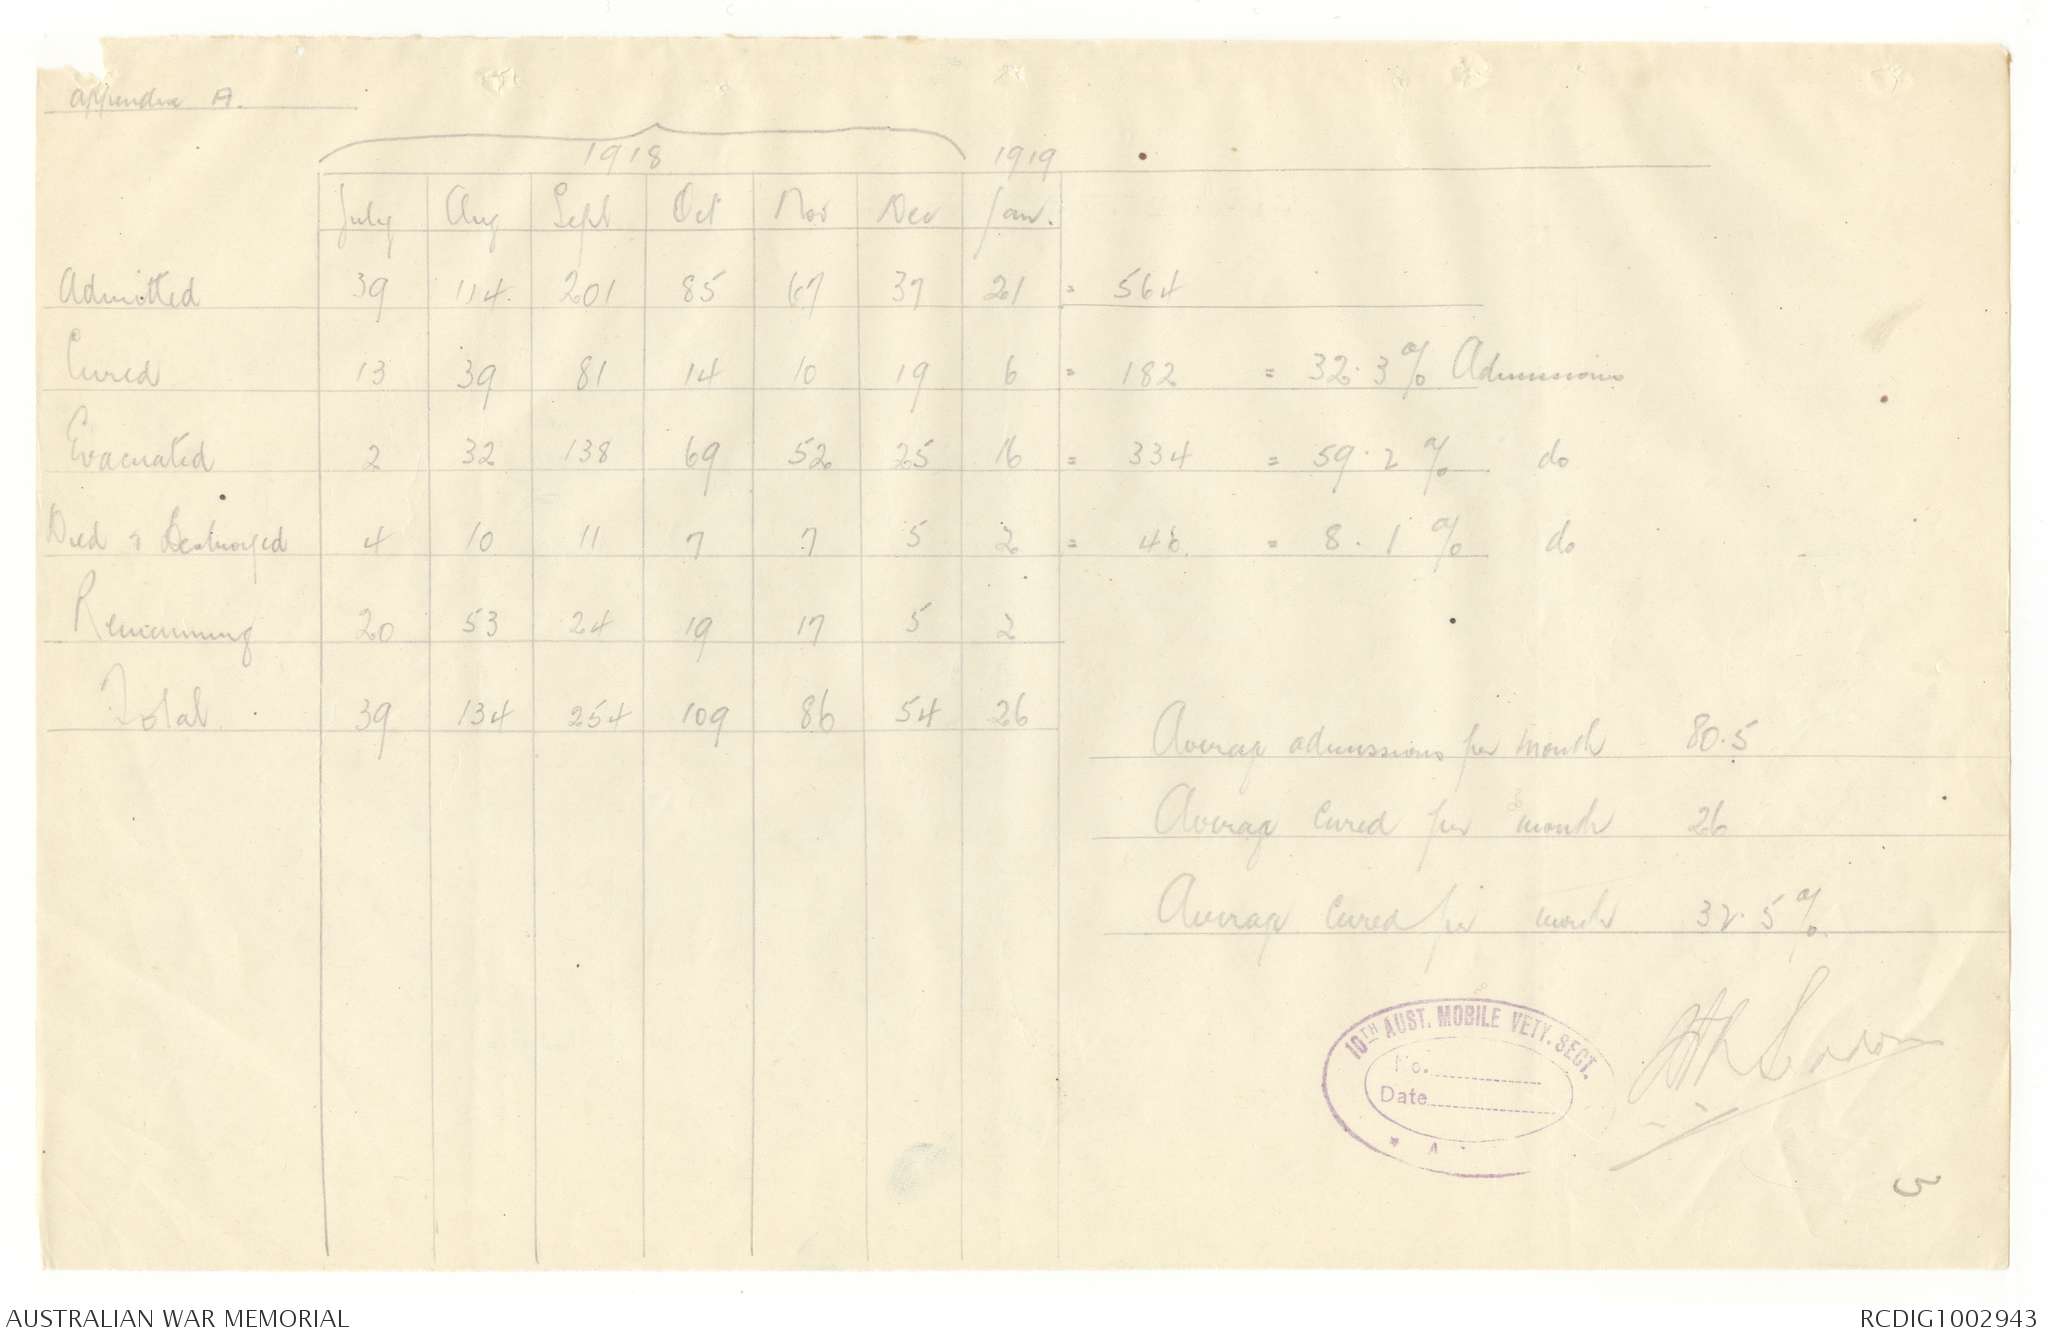 Appendix A.
1918 1919
July Aug Sept Oct Nov Dec Jan.
Admitted 39 114. 201 85 67 37 21 = 564
Cured 13 39 81 14 10 19 6 = 182 = 32.3% Admissions
Evacuated 2 32 138 69 52 25 16 = 334 = 59.2% do
Died & Destroyed 4 10 11 7 7 5 2 = 46. = 8.1% do
Remaining 20 53 24 19 17 5 2
Total 39 134 254 109 86 54 26
Average admissions per month 80.5
Average cured per month 26
Average cured per month 32.5%
10TH AUST. MOBILE VETY. SECT.
No.
Date
* A
3
AUSTRALIAN WAR MEMORIAL
RCDIG1002943